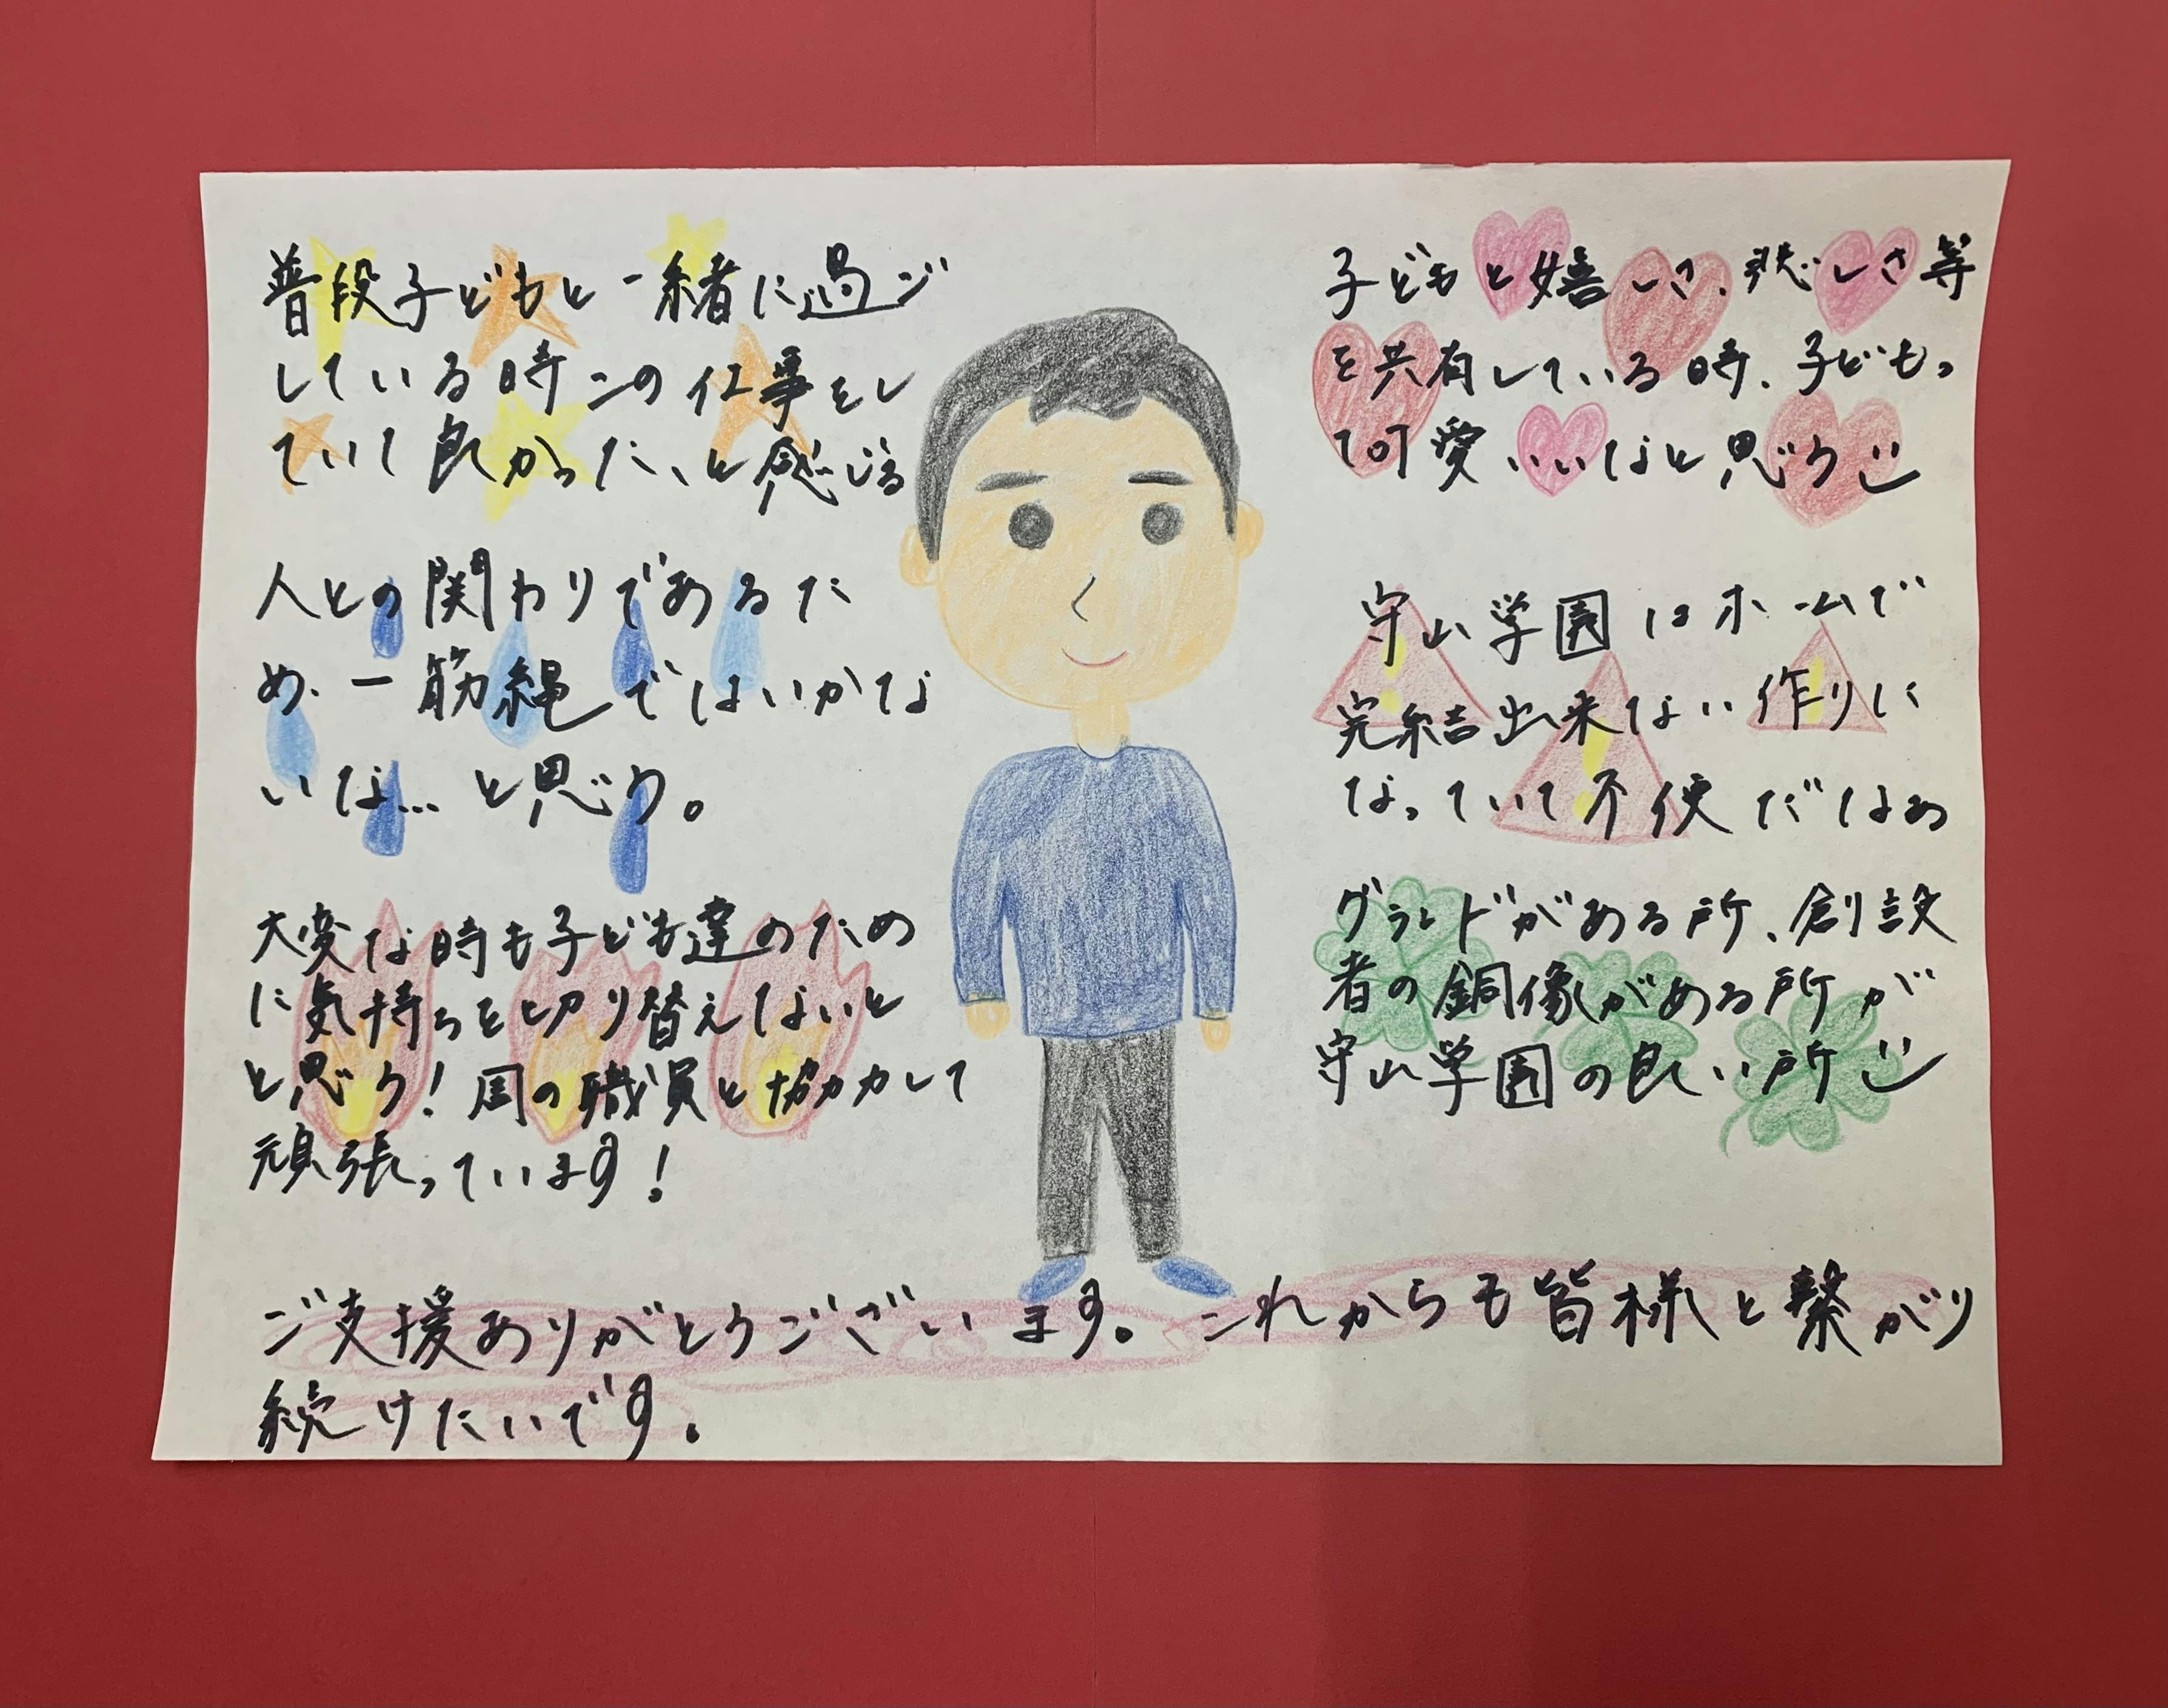 普段子どもと一緒に過ご
している時この仕事をし
ていて良かった、と感じる
人との関わりであるた
め、一筋縄ではいかな
いな…と思う。
大変な時も子ども達のため
に気持ちを切り替えないと
と思う！周の職員と協力して
頑張っています！
子どもと嬉しさ、悲しさ等
を共有している時、子どもっ
て可愛いいなと思う
守山学園はホームで
完結出来ない作りに
なっていて不便だなぁ
グランドがある所、創設
者の銅像がある所が
守山学園の良い所
ご支援ありがとうございます。これからも皆様と繋がり
続けたいです。